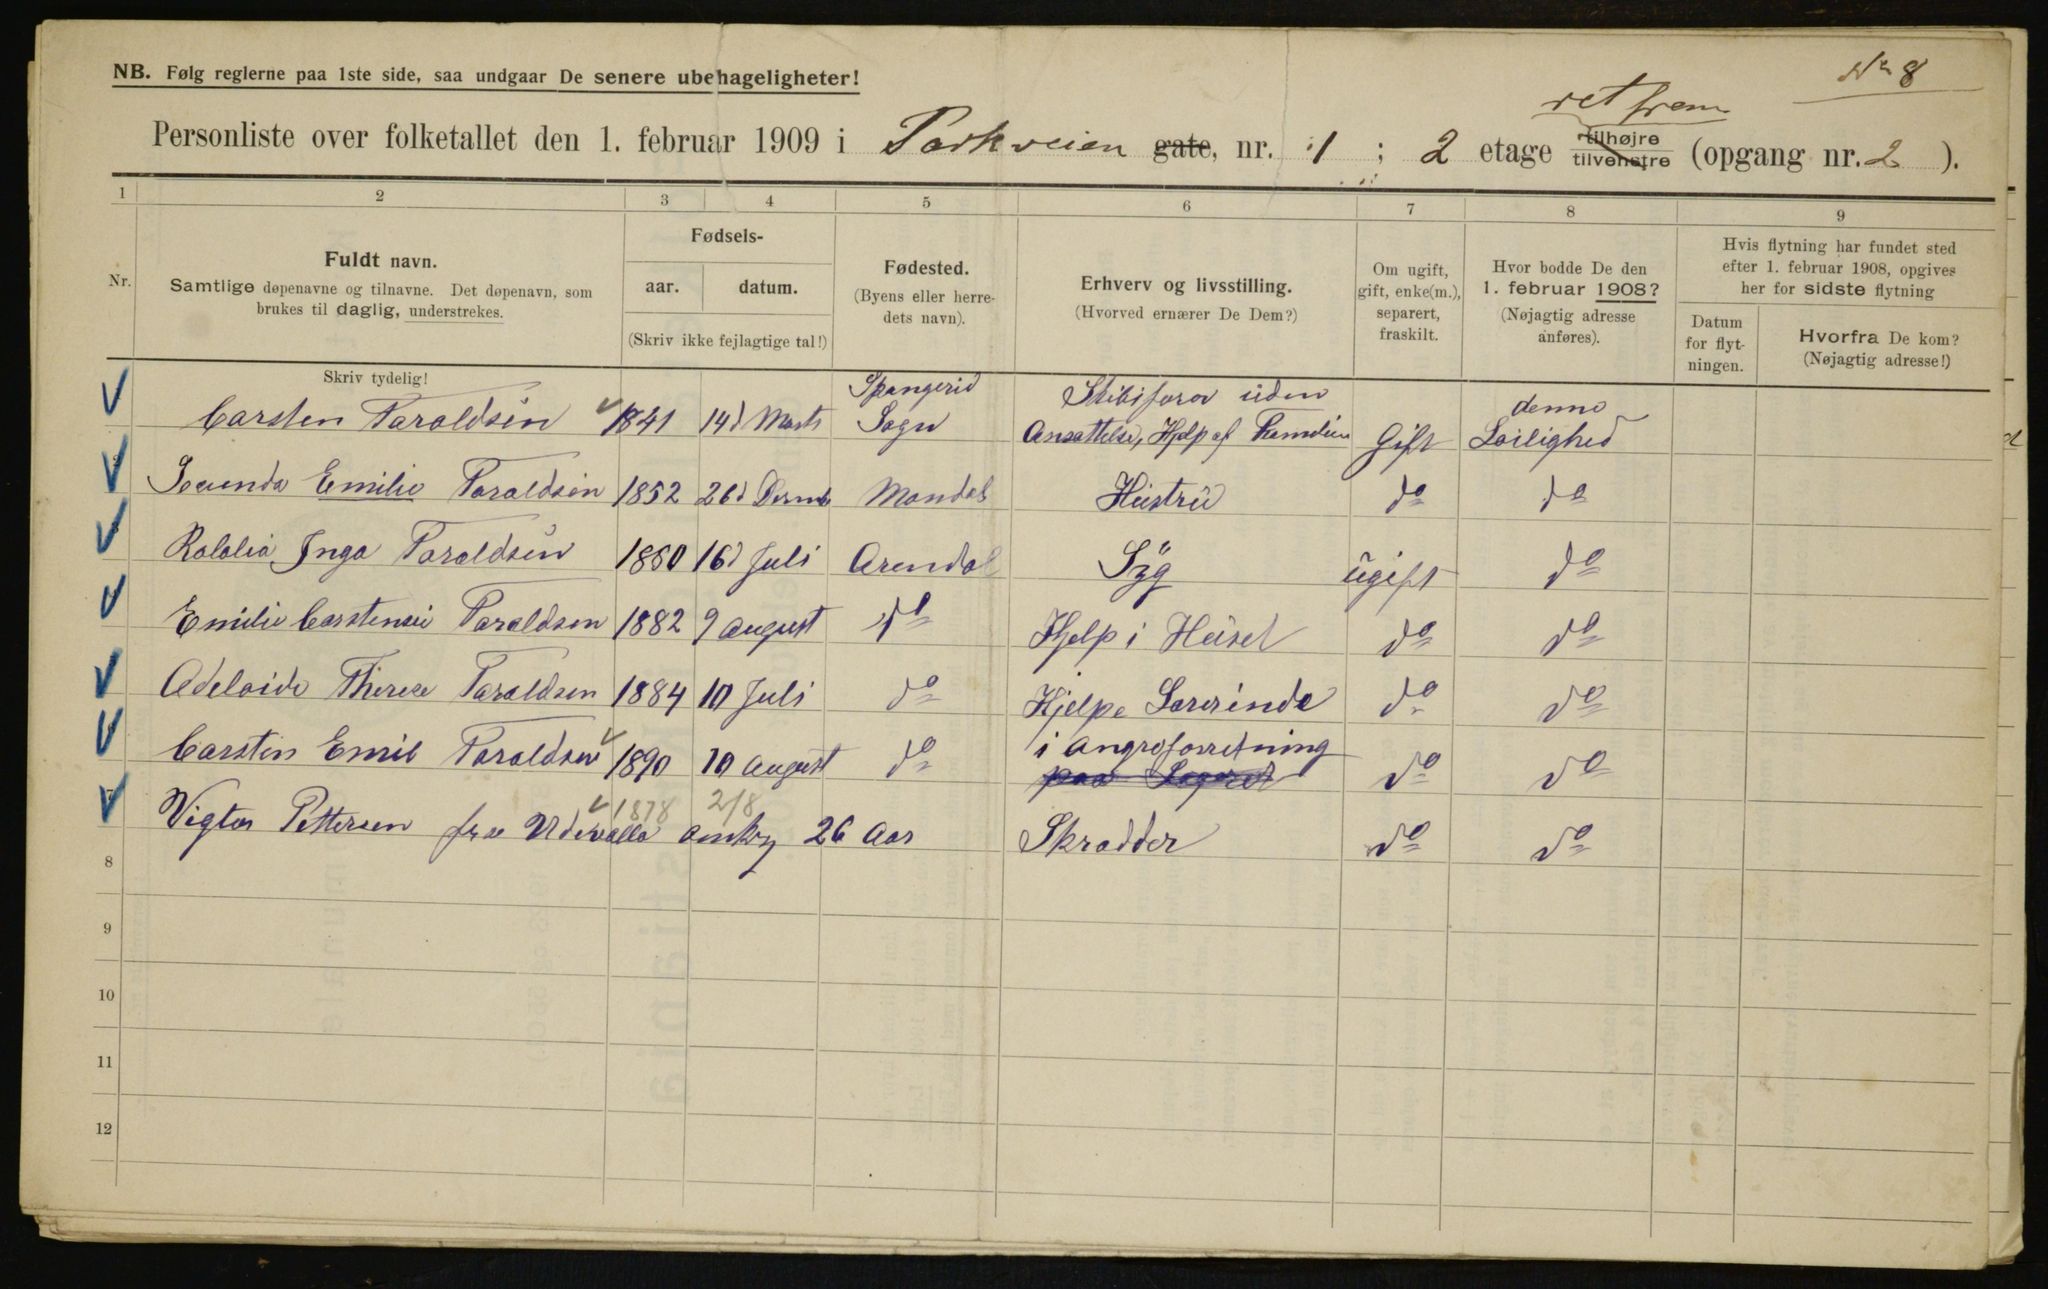 No 8
NB. Følg reglerne paa 1ste side, saa undgaar De senere ubehageligheter!
ret frem
Personliste over folketallet den 1. februar 1909 i Parkveien gate, nr. 1 ; 2 etage tilhøjre tilvenstre (opgang nr. 2 ).
1 2 3 4 5 6 7 8 9
Nr.
Fuldt navn.
Samtlige døpenavne og tilnavne. Det døpenavn, som
brukes til daglig, understrekes.
Fødsels-
aar. datum.
(Skriv ikke fejlagtige tal!)
Fødested.
(Byens eller herre-
dets navn).
Erhverv og livsstilling.
(Hvorved ernærer De Dem?)
Om ugift,
gift, enke(m.),
separert,
fraskilt.
Hvor bodde De den
1. februar 1908?
(Nøjagtig adresse
anføres).
Hvis flytning har fundet sted
efter 1. februar 1908, opgives
her for sidste flytning
Datum
for flyt-
ningen.
Hvorfra De kom?
(Nøjagtig adresse!)
Skriv tydelig!
Spangerid Skibsfører uden denne
Carsten Taraldsen 1841 14d Marts Sogn Ansættelse, Hjelp af Familien Gift Leilighed
Emilie Taraldsen 1852 26d Mandal Hustrü do do
Inga Taraldsen 1880 16d Juli Arendal Syg ügift do
Emilie Taraldsen 1882 9 august do Hjelp i Hüset do do
Adelaide Therese Taraldsen 1884 10 Juli do Hjelpe Lærerinde do do
i Angroforretning
Carsten Emil Taraldsen 1890 10 august do paa Lageret do do
1878 2/8
7 Vigtor Pettersen fra Udevalla omkr 26 Aar Skrædder do do
8
9
10
11
12